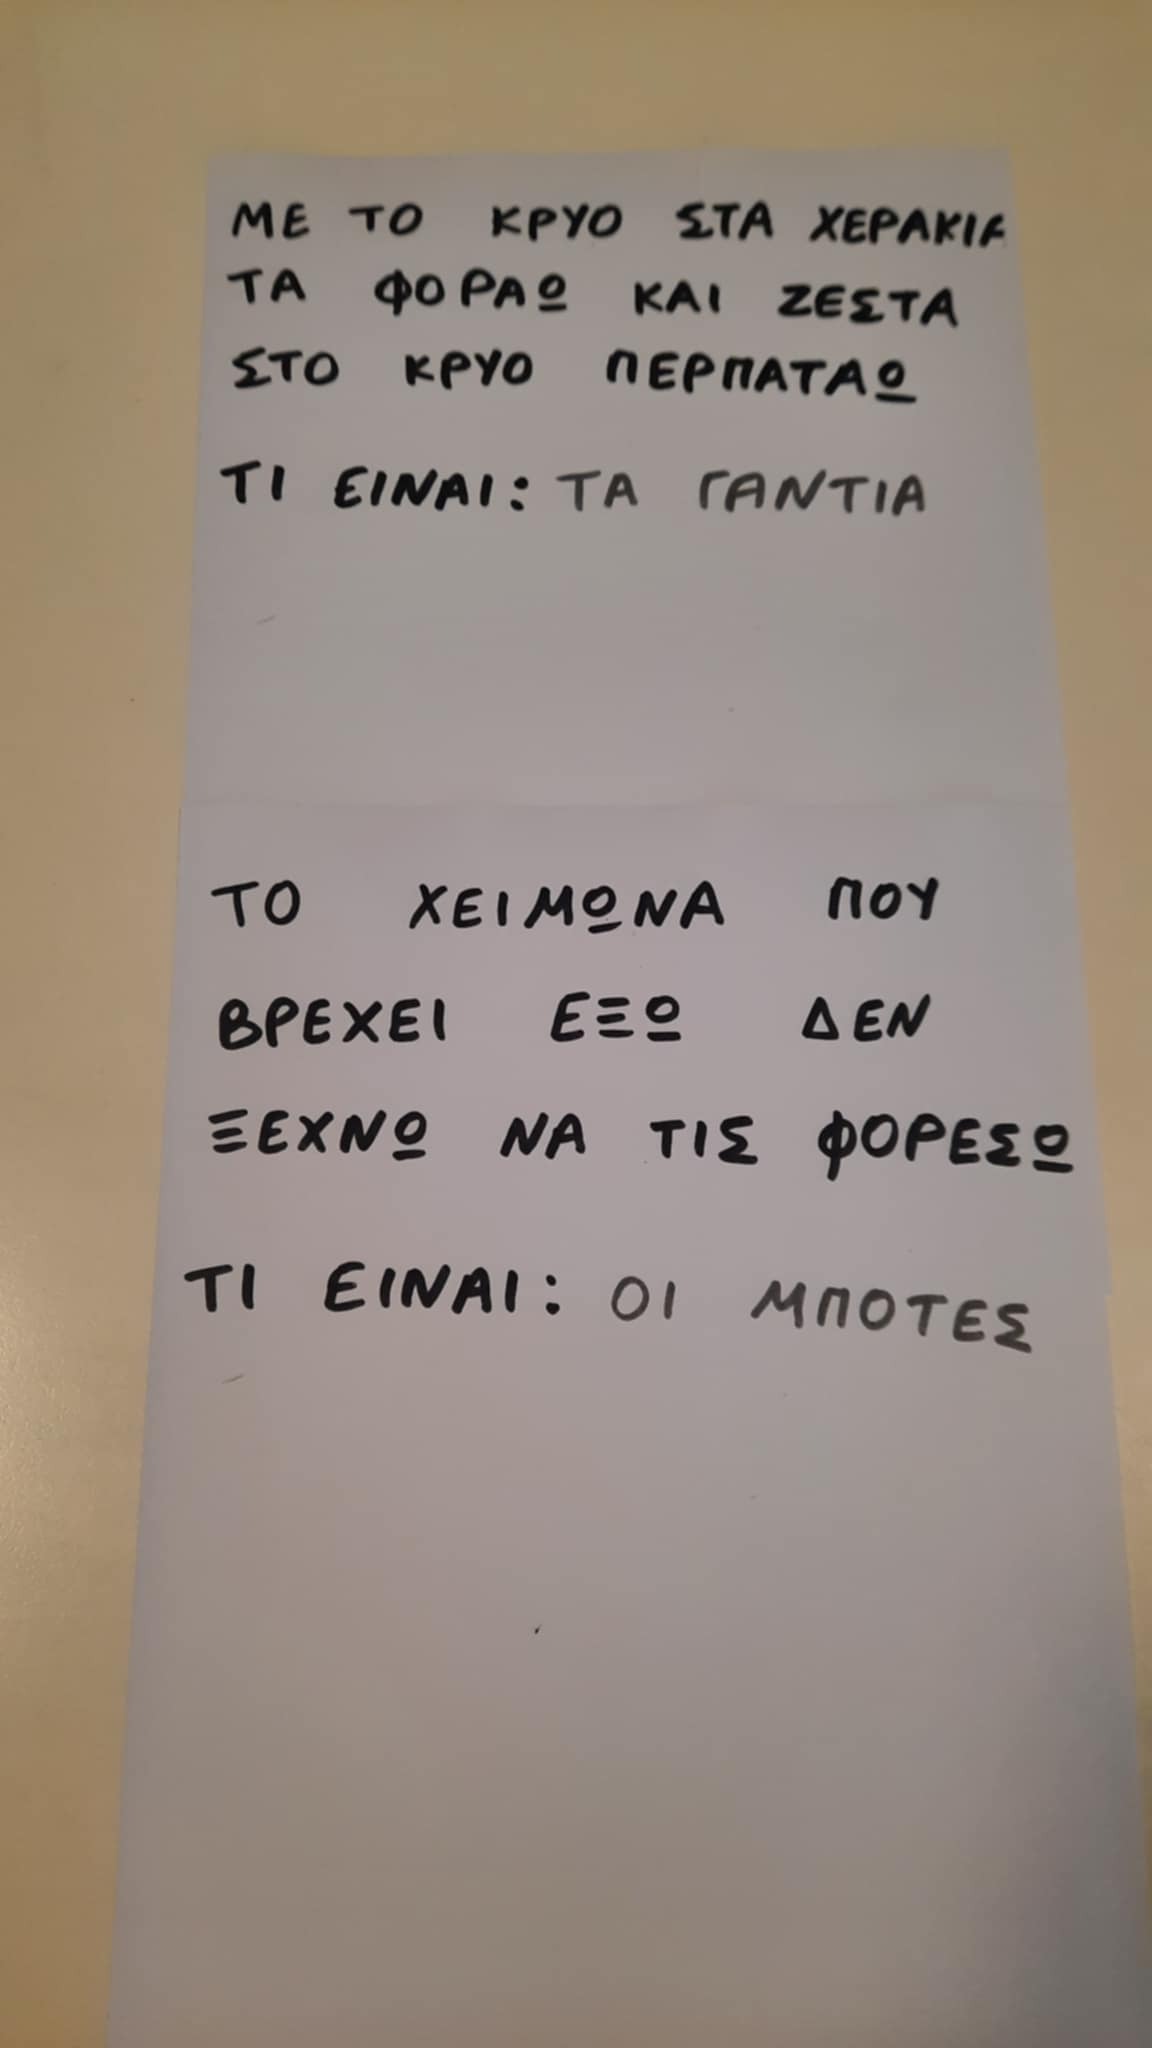 ΜΕ ΤΟ ΚΡΥΟ ΣΤΑ ΧΕΡΑΚΙΑ
ΤΑ ΦΟΡΑΩ ΚΑΙ ΖΕΣΤΑ
ΣΤΟ ΚΡΥΟ ΠΕΡΠΑΤΑΩ
ΤΙ ΕΙΝΑΙ: ΤΑ ΓΑΝΤΙΑ
ΤΟ ΧΕΙΜΩΝΑ ΠΟΥ
ΒΡΕΧΕΙ ΕΞΩ ΔΕΝ
ΞΕΧΝΩ ΝΑ ΤΙΣ ΦΟΡΕΣΩ
ΤΙ ΕΙΝΑΙ: ΟΙ ΜΠΟΤΕΣ